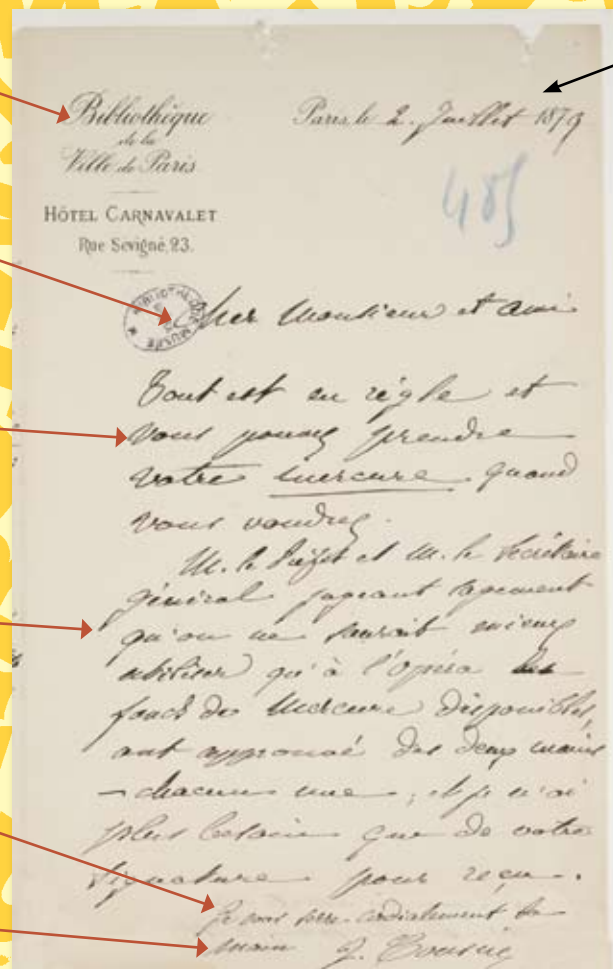 Bibliothèque
de la
Ville de Paris
HÔTEL CARNAVALET
Rue Sévigné, 23.
Paris le 2 Juillet 1879
485
BIBLIOTHEQUE MUSÉE
Cher Monsieur et ami
Tout est en règle et
vous pouvez prendre
votre mercure quand
vous voudrez.
M. le Préfet et M. le Secrétaire
général jugeant sagement
qu'on ne saurait mieux
utiliser qu'à l'opéra les
fonds de Mercure disponibles,
ont approuvé des deux mains
– chacun une –, et je n'ai
plus besoin que de votre
signature pour reçu.
Je vous serre cordialement la
main J. Cousin